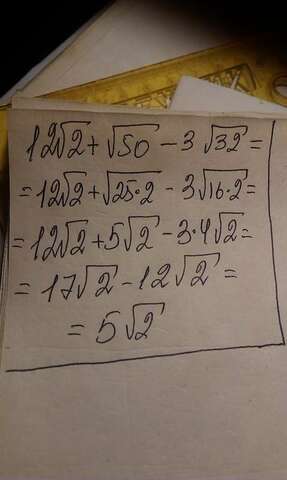 12√2 + √50 − 3√32 =
= 12√2 + √25·2 − 3√16·2 =
= 12√2 + 5√2 − 3·4√2 =
= 17√2 − 12√2 =
= 5√2